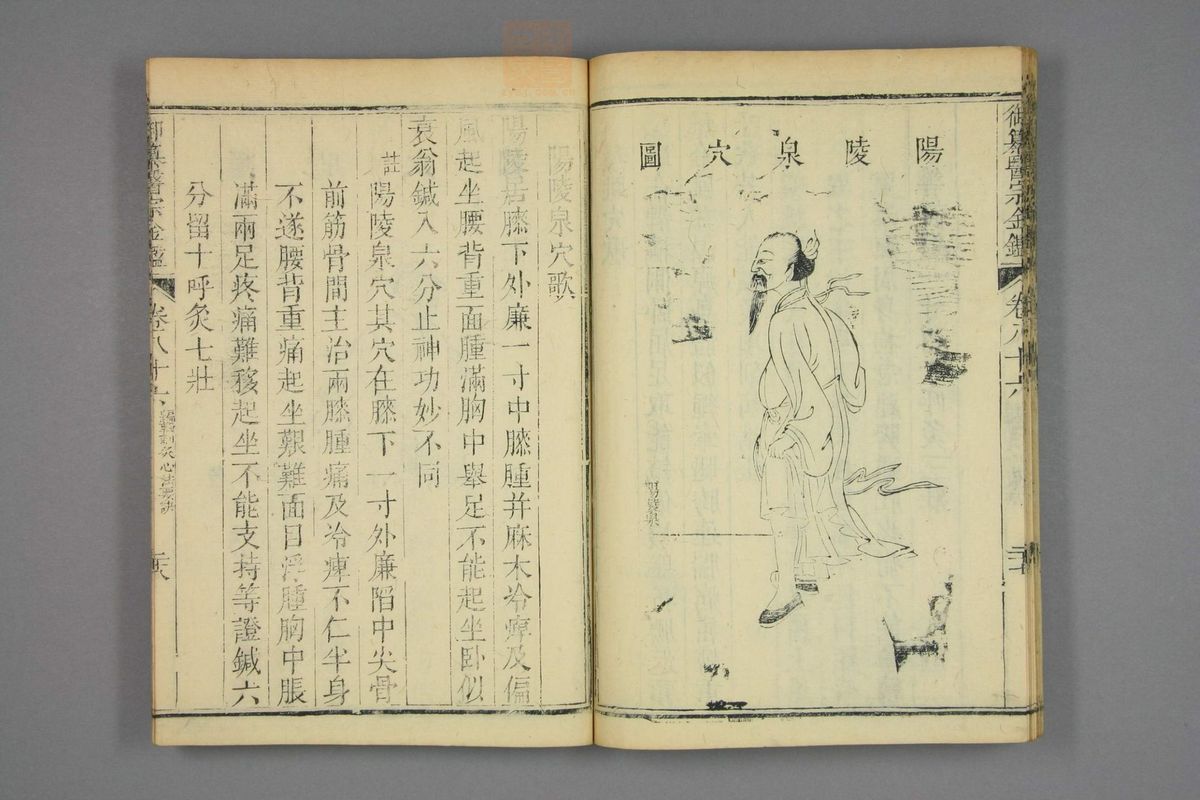 御纂醫宗金鑑
卷八十六
陽陵泉穴圖
陽陵泉
陽陵泉穴歌
陽陵居膝下外廉一寸中膝腫并麻木冷痺及偏
風起坐腰背重面腫滿胸中舉足不能起坐卧似
衰翁鍼入六分止神功妙不同
註陽陵泉穴其穴在膝下一寸外廉陷中尖骨
前筋骨間主治兩膝腫痛及冷痺不仁半身
不遂腰背重痛起坐艱難面目浮腫胸中脹
滿兩足疼痛難移起坐不能支持等證鍼六
分留十呼灸七壯
御纂醫宗金鑑
卷八十六
刺灸心法要訣